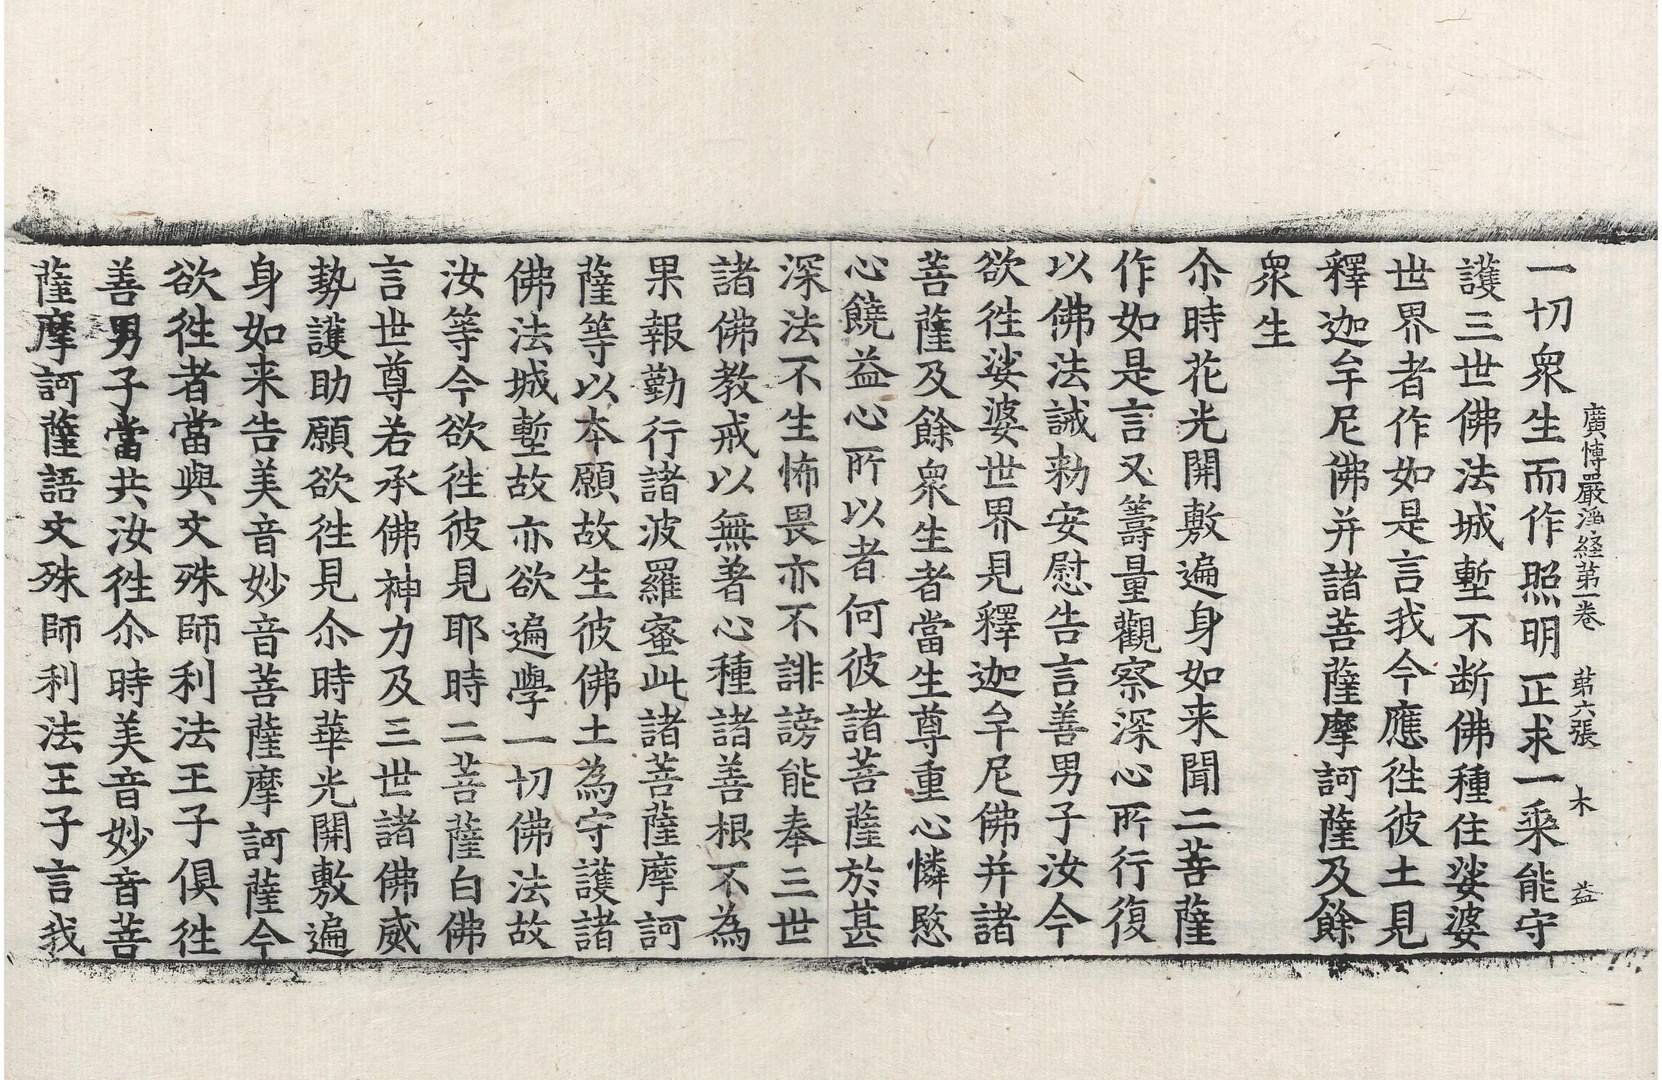 廣愽嚴淨経第一卷　第六張　木　益
一切衆生而作照明正求一乗能守
護三世佛法城塹不断佛種住娑婆
世界者作如是言我今應徃彼土見
釋迦牟尼佛并諸菩薩摩訶薩及餘
衆生
尒時花光開敷遍身如来聞二菩薩
作如是言又籌量觀察深心所行復
以佛法誡勑安慰告言善男子汝今
欲徃娑婆世界見釋迦牟尼佛并諸
菩薩及餘衆生者當生尊重心憐愍
心饒益心所以者何彼諸菩薩於甚
深法不生怖畏亦不誹謗能奉三世
諸佛教戒以無著心種諸善根不為
果報勤行諸波羅蜜此諸菩薩摩訶
薩等以本願故生彼佛土為守護諸
佛法城塹故亦欲遍學一切佛法故
汝等今欲徃彼見耶時二菩薩白佛
言世尊若承佛神力及三世諸佛威
勢護助願欲徃見尒時華光開敷遍
身如来告美音妙音菩薩摩訶薩今
欲徃者當與文殊師利法王子俱徃
善男子當共汝徃尒時美音妙音菩
薩摩訶薩語文殊師利法王子言我